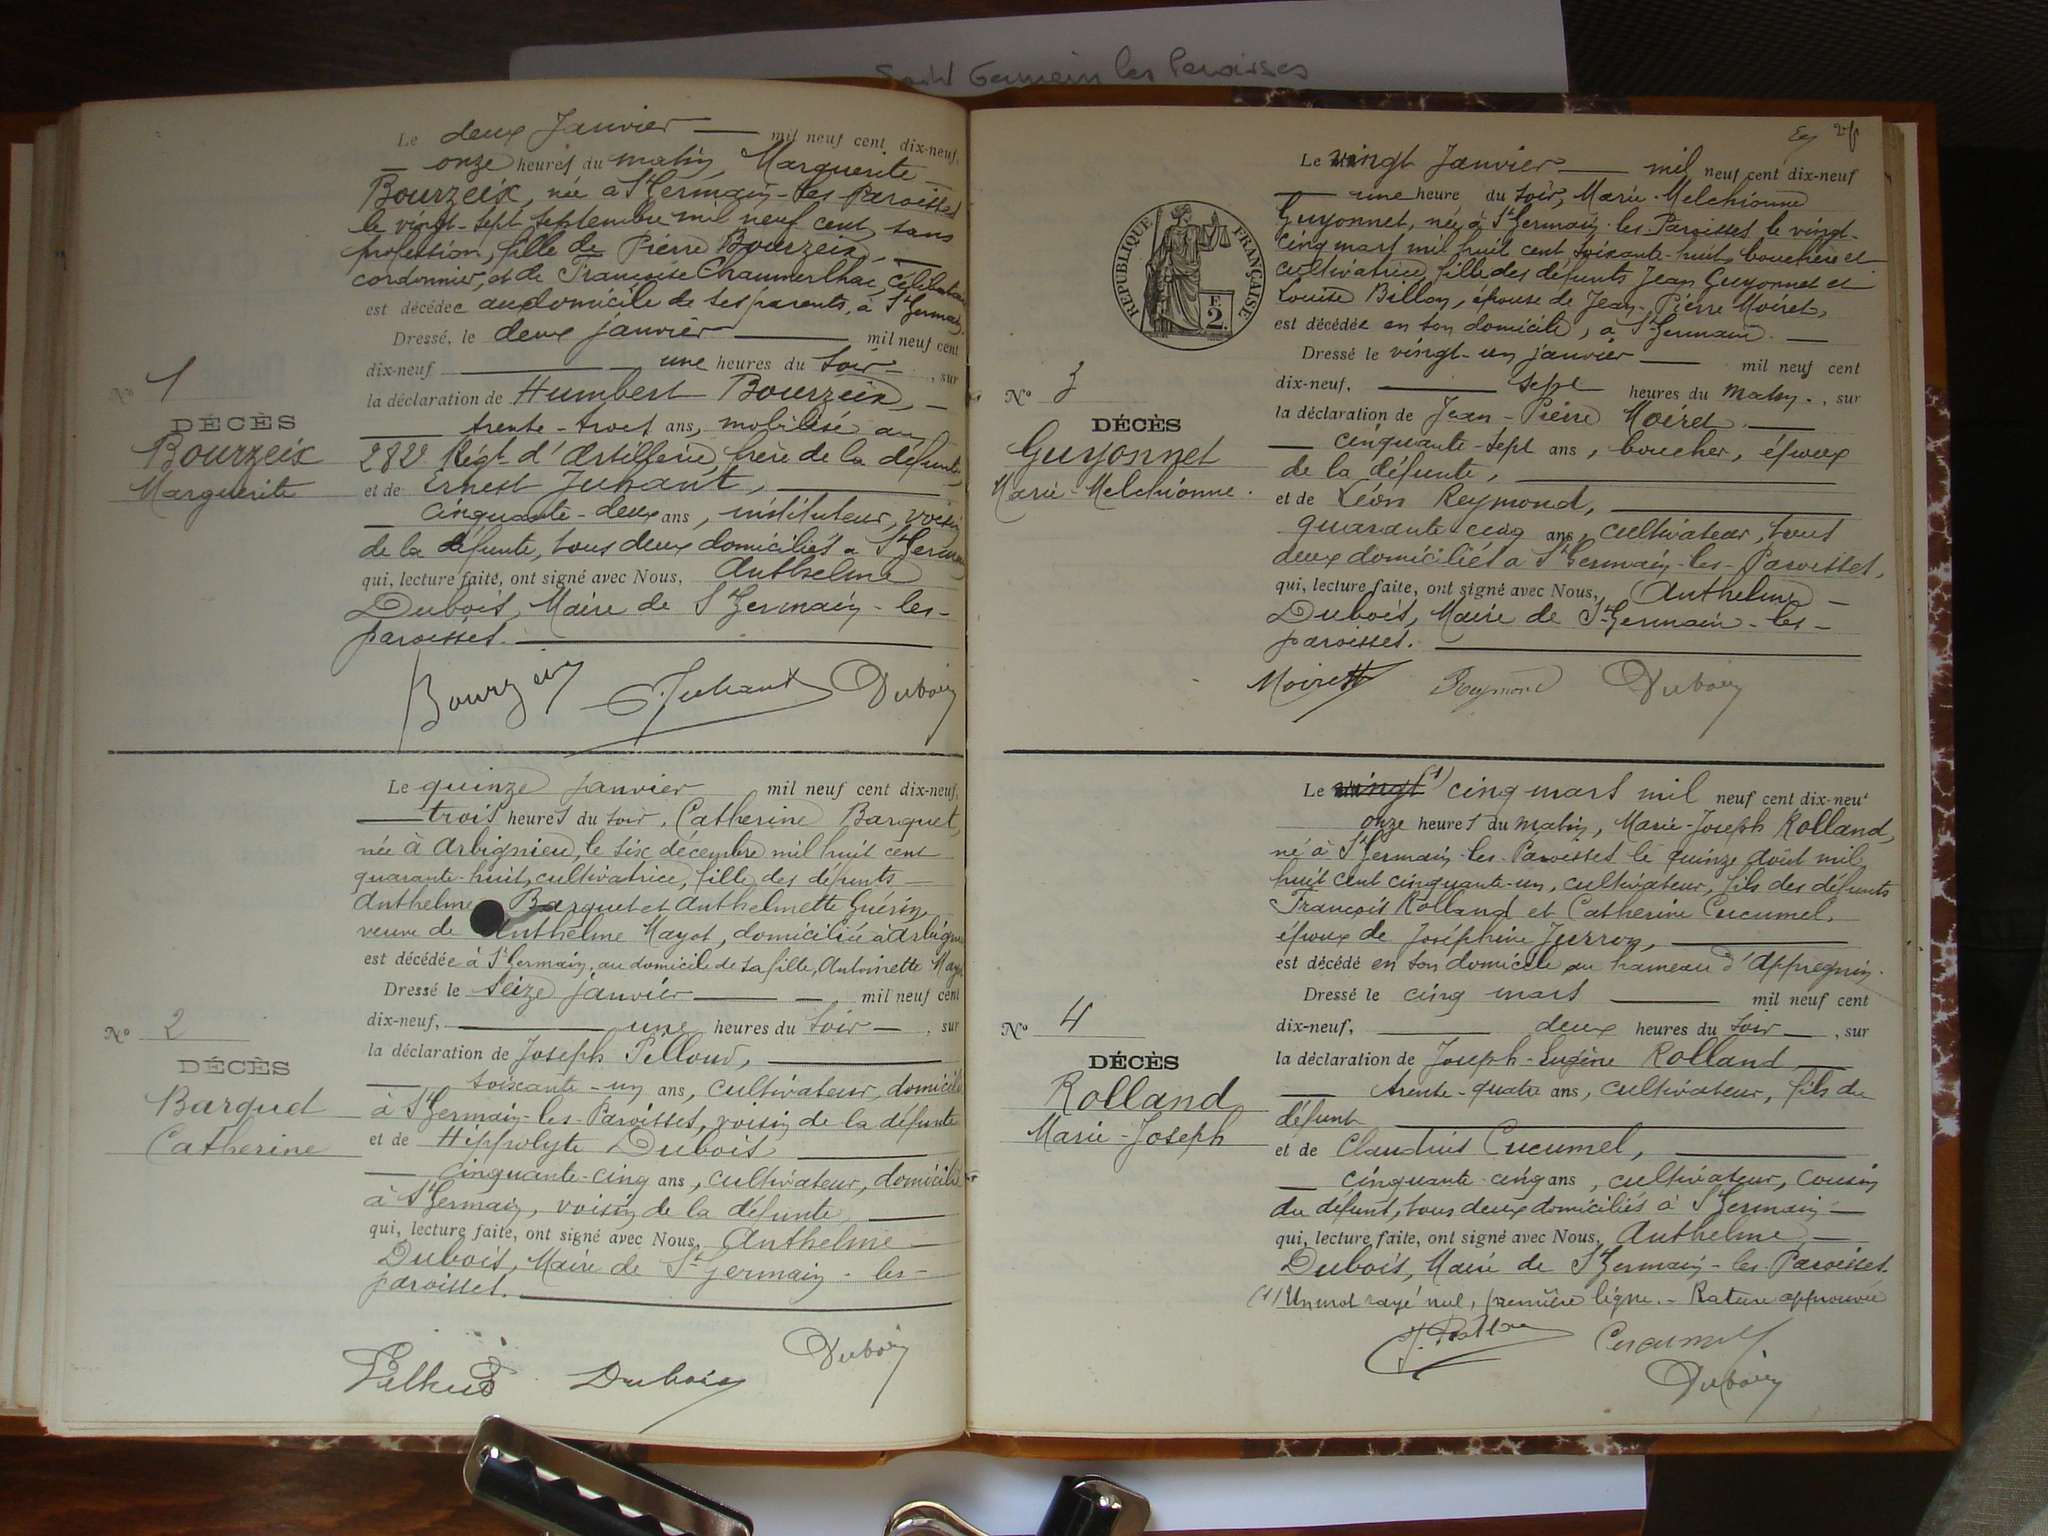 Saint Germain les Paroisses
Le deux Janvier — mil neuf cent dix-neuf,
— onze heures du matin, Marguerite
Bourzeix, née à St Germain-les Paroisses
le vingt-sept septembre mil neuf cent, sans
profession, fille de Pierre Bourzeix, —
cordonnier, et de Françoise Chaumerlhac, célibataire
est décédée au domicile de ses parents, à St Germain.
Dressé, le deux janvier — mil neuf cent
dix-neuf — une heures du soir —, sur
la déclaration de Humbert Bourzeix, —
— trente-trois ans, mobilisé au
282e Régt d'Artillerie, frère de la défunte,
et de Ernest Juhant, —
— cinquante-deux ans, instituteur, voisin
de la défunte, tous deux domiciliés à St Germain
qui, lecture faite, ont signé avec Nous, Anthelme
Dubois, Maire de St Germain-les-
paroisses. —
No 1
DÉCÈS
Bourzeix
Marguerite
Bourzeix E. Juhant Dubois
Le quinze janvier mil neuf cent dix-neuf,
— trois heures du soir, Catherine Barquet,
née à Arbignieu, le six décembre mil huit cent
quarante-huit, cultivatrice, fille des défunts —
Anthelme Barquet et Anthelmette Guérin,
veuve de Anthelme Mayot, domiciliée à Arbignieu
est décédée à St Germain, au domicile de sa fille, Antoinette Mayot
Dressé le seize janvier — —, mil neuf cent
dix-neuf, — une heures du soir —, sur
la déclaration de Joseph Pélloud, —
— soixante-un ans, cultivateur, domicilié
à St Germain-les-Paroisses, voisin de la défunte
et de Hippolyte Dubois —
— cinquante-cinq ans, cultivateur, domicilié
à St Germain, voisin de la défunte, —
qui, lecture faite, ont signé avec Nous, Anthelme —
Dubois, Maire de St Germain-les-
paroisses. —
No 2
DÉCÈS
Barquet
Catherine
Dubois
Dubois
Le vingt Janvier — mil neuf cent dix-neuf
— une heure du soir, Marie-Melchionne
Guyonnet, née à St Germain-les-Paroisses le vingt-
cinq mars mil huit cent soixante-huit, bouchère et
cultivatrice, fille des défunts Jean Guyonnet et
Louise Billon, épouse de Jean-Pierre Moiret,
est décédée en son domicile, à St Germain. —
Dressé le vingt-un janvier — mil neuf cent
dix-neuf, — sept heures du matin., sur
la déclaration de Jean-Pierre Moiret, —
— cinquante-sept ans, boucher, époux
de la défunte, —
et de Léon Reymond, —
quarante cinq ans, cultivateur, tous
deux domiciliés à St Germain-les-Paroisses,
qui, lecture faite, ont signé avec Nous, Anthelme —
Dubois, Maire de St Germain-les-
paroisses. —
RÉPUBLIQUE FRANÇAISE
F.
2.
No 3
DÉCÈS
Guyonnet
Marie-Melchionne.
Moirett Reymond Dubois
Le vingt (1) cinq mars mil neuf cent dix-neuf
onze heures du matin, Marie-Joseph Rolland,
né à St Germain-les-Paroisses le quinze août mil
huit cent cinquante-un, cultivateur, fils des défunts
François Rolland et Catherine Cucumel,
époux de Joséphine Jurron, —
est décédé en son domicile au hameau d'Appregnin.
Dressé le cinq mars — mil neuf cent
dix-neuf, — deux heures du soir —, sur
la déclaration de Joseph-Eugène Rolland —
— trente-quatre ans, cultivateur, fils du
défunt —
et de Claudius Cucumel, —
— cinquante-cinq ans, cultivateur, cousin
du défunt, tous deux domiciliés à St Germain —
qui, lecture faite, ont signé avec Nous, Anthelme —
Dubois, Maire de St Germain-les-Paroisses.
(1) Un mot rayé nul, première ligne. — Rature approuvée
No 4
DÉCÈS
Rolland
Marie-Joseph
Cucumel
Dubois